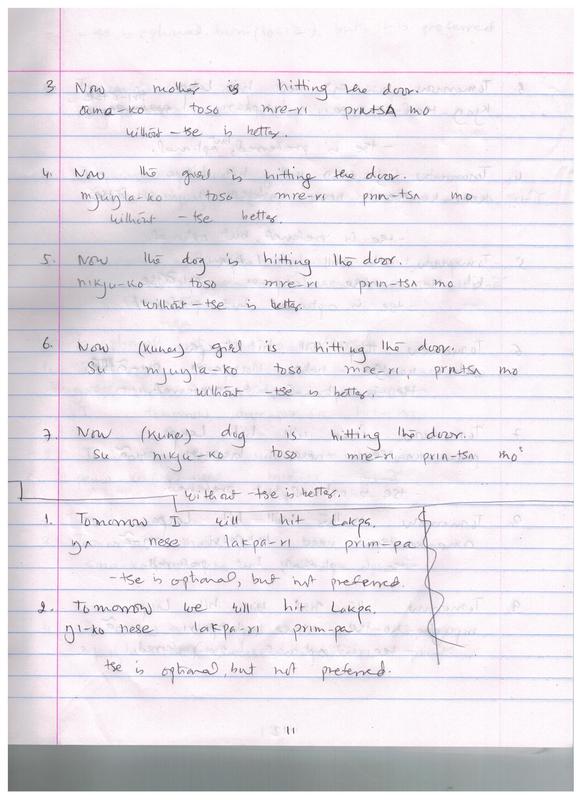 3. Now mother is hitting the door.
ama-ko toso mre-ri prɪntsʌ mo
without -tse is better.
4. Now the girl is hitting the door.
mɟuyla-ko toso mre-ri prɪn-tsʌ mo
without -tse better.
5. Now the dog is hitting the door.
nikju-ko toso mre-ri prin-tsʌ mo
without -tse is better.
6. Now (kune) girl is hitting the door.
Su mjuyla-ko toso mre-ri, prɪn-tsʌ mo
without -tse is better.
7. Now (kune) dog is hitting the door.
Su nikju-ko toso mre-ri prin-tsʌ mo
without -tse is better.
1. Tomorrow I will hit Lakpa.
ŋʌ nese lakpa-ri prim-pa
-tse is optional, but not preferred.
2. Tomorrow we will hit Lakpa.
ŋi-ko nese lakpa-ri prim-pa
tse is optional, but not preferred.
11